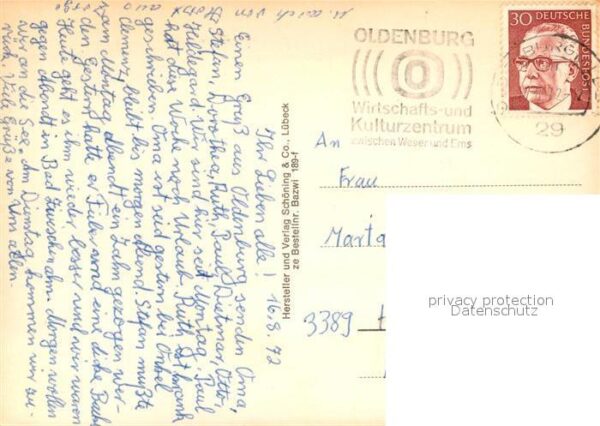 u. auch von
Ihr Lieben alle! 16.8.72
Einen Gruß aus Oldenburg senden Oma,
Stefan, Dorothea, Ruth, Paul, Dietmar, Otto,
Hildegard. Wir sind hier seit Montag. Paul
hat diese Woche noch Urlaub. Ruth ist krank
geschrieben. Oma ist seit gestern bei Onkel
Clemens, bleibt bis morgen abend. Stefan mußte
am Montag abend ein Zahn gezogen wer-
den. Gestern hatte er Fieber und eine dicke Backe
Heute geht es ihm wieder besser und wir waren
gegen abend in Bad Zwischenahn. Morgen wollen
wir an die See. Am Dienstag kommen wir zu-
rück. Viele Grüße von uns allen.
Hersteller und Verlag Schöning & Co., Lübeck
ze Bestellnr. Bazwi 189-f
OLDENBURG
Wirtschafts-und
Kulturzentrum
zwischen Weser und Ems
30
DEUTSCHE BUNDESPOST
29
An
Frau
Marta
3389
privacy protection
Datenschutz